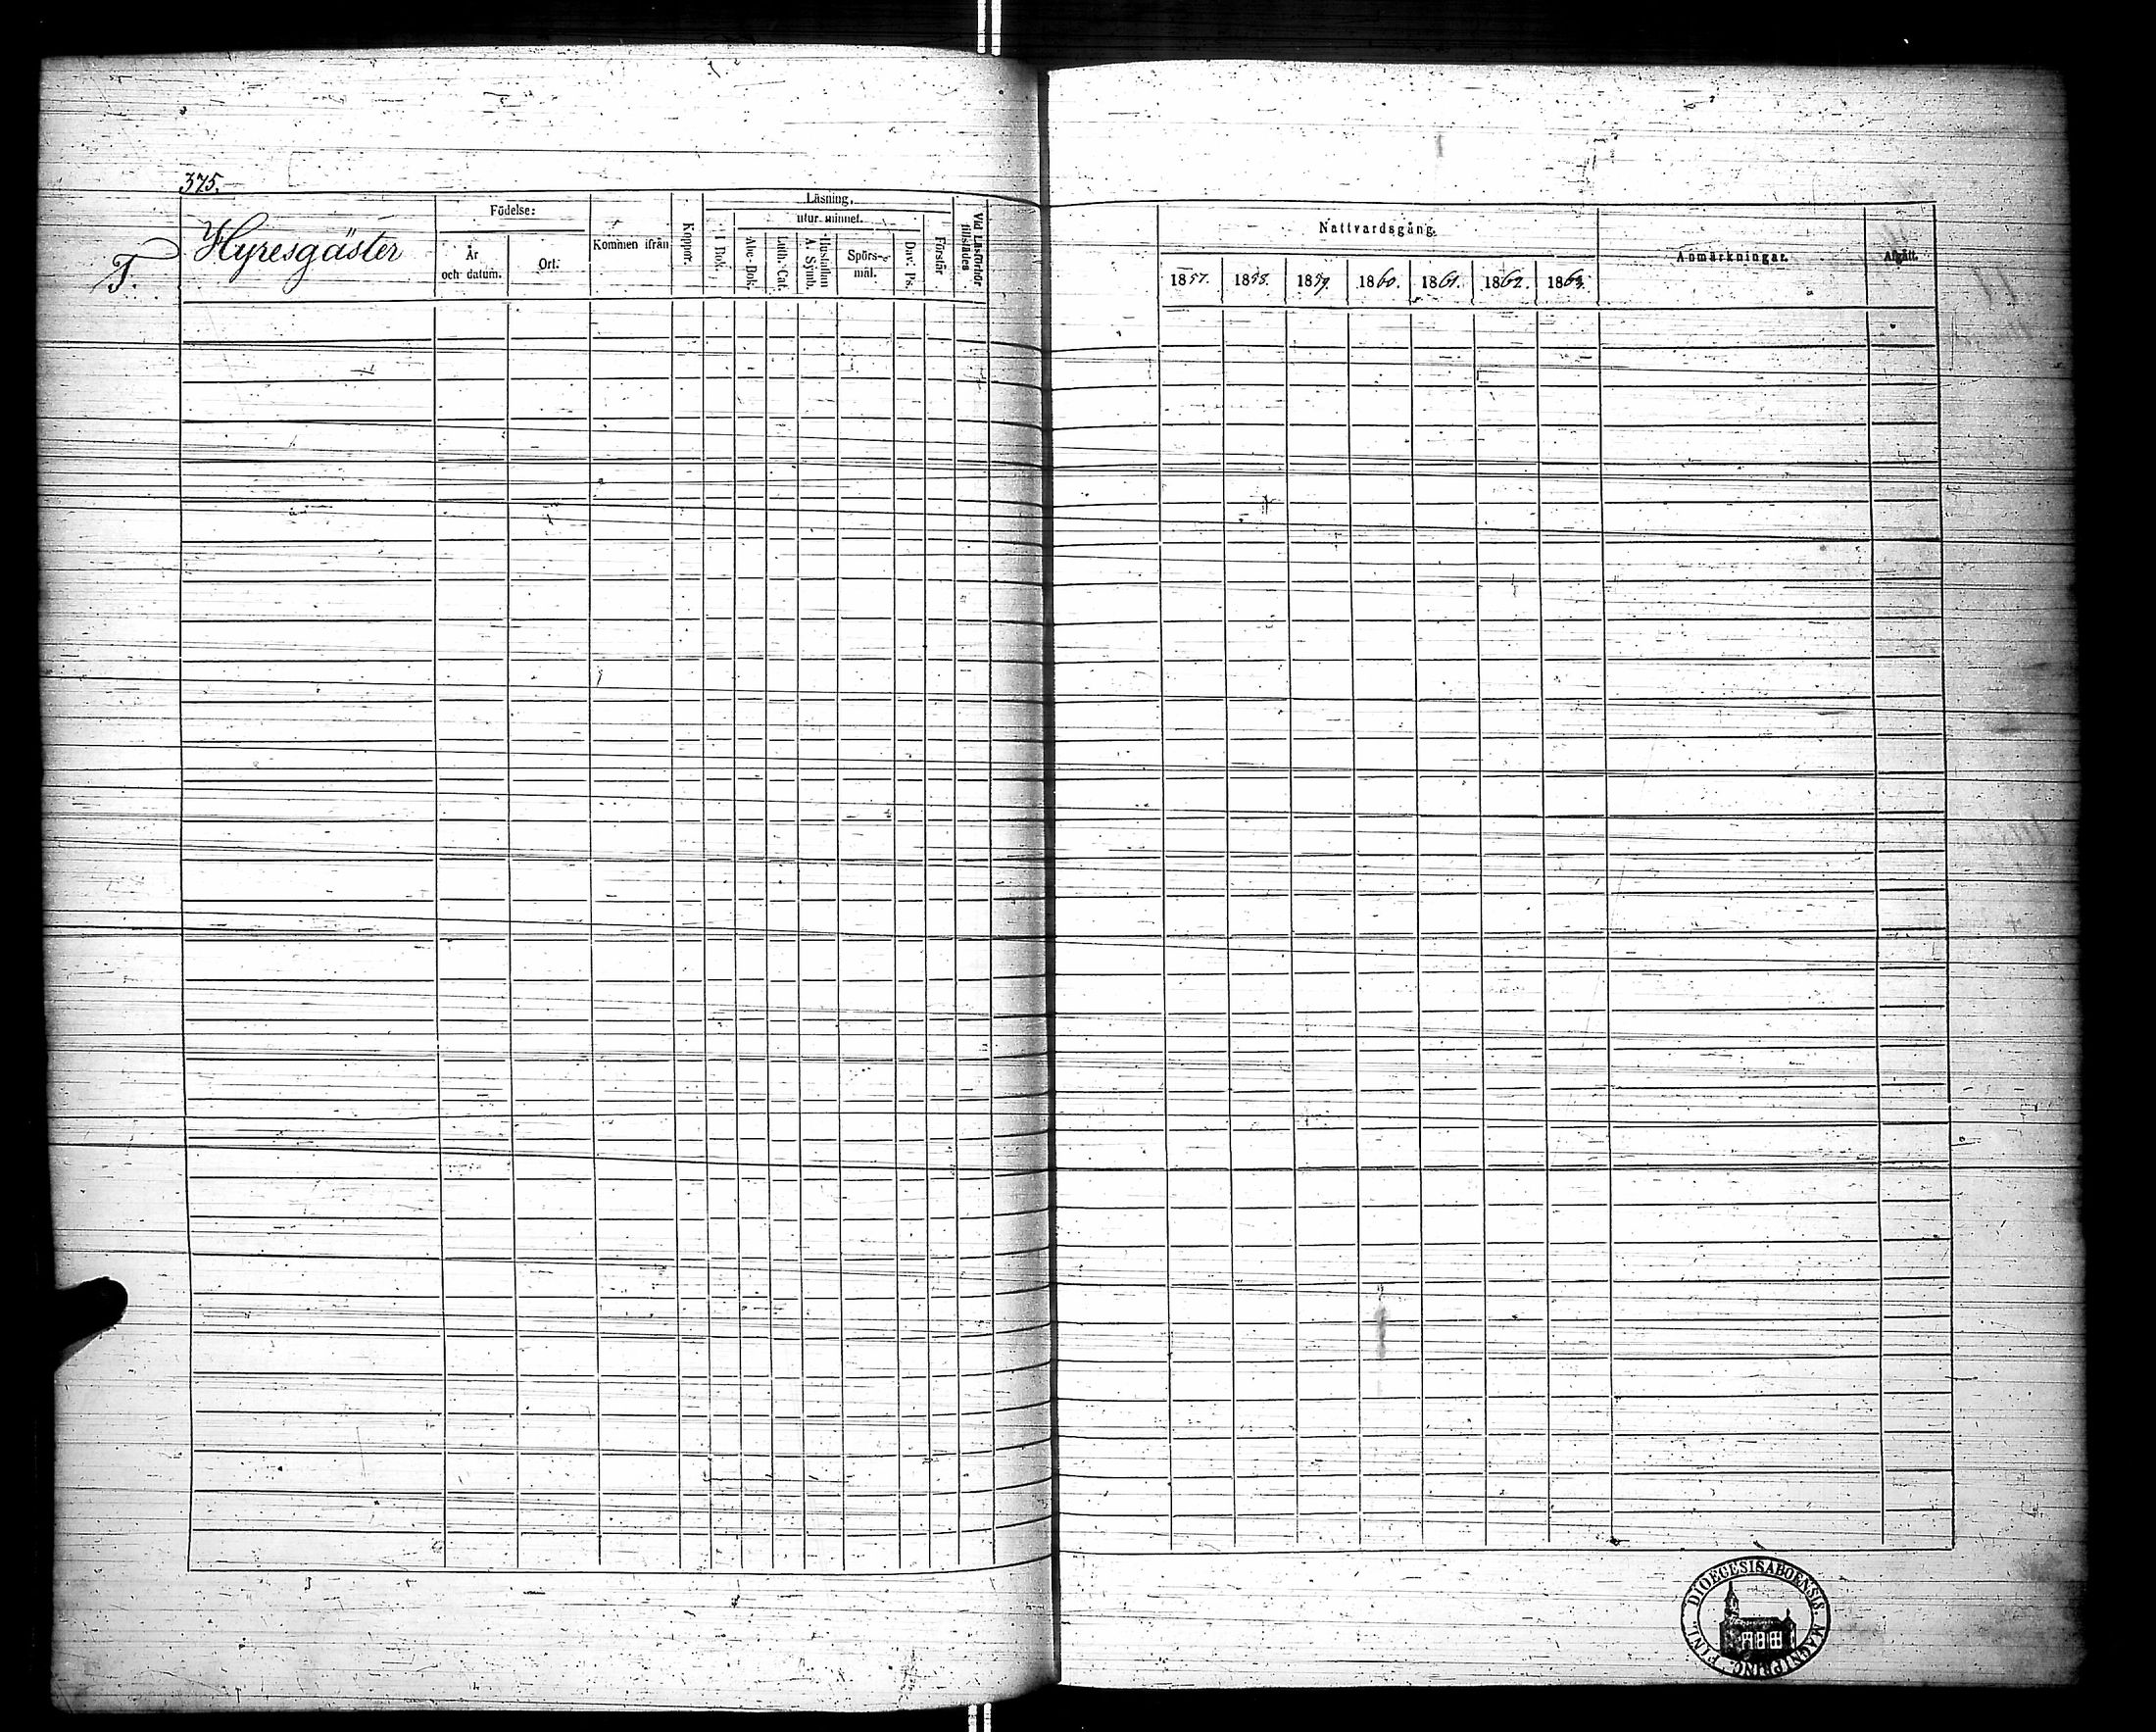 375.
T.
Hyresgäster
Födelse:
År och datum.
Ort.
Kommen ifrån
Koppor.
Läsning,
I Bok.
utur minnet.
Abc-Bok
Luth. Cat.
Hustaflan A. Symb.
Spörs-mål.
Dav. Ps.
Förstår
Vid Läsförhör tillstädes
Nattvardsgång.
1857.
1858.
1859.
1860.
1861.
1862.
1863.
Anmärkningar.
Afgått.
DIOECESIS ABOENSIS. MAGNI PRINC. FINL.